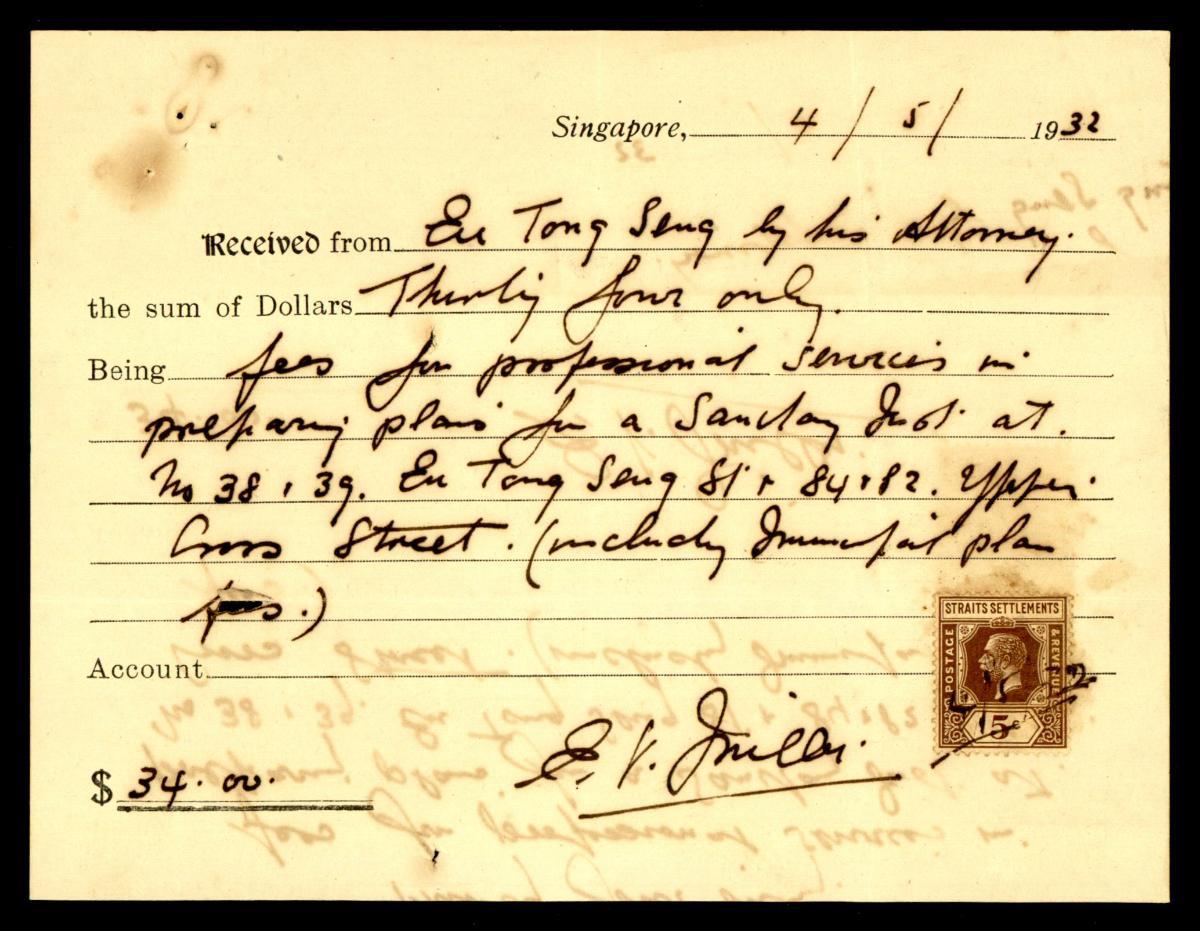 Singapore, 4 / 5 / 1932
Received from Eu Tong Seng by his Attorney.
the sum of Dollars Thirty four only.
Being fees for professional services in
preparing plans for a Sanitary Inst. at.
No 38 & 39. Eu Tong Seng St & 84 & 82. Upper
Cross Street. (including Municipal plan
fees.)
Account
STRAITS SETTLEMENTS
POSTAGE & REVENUE
5c
E. V. Miller.
$ 34.00.